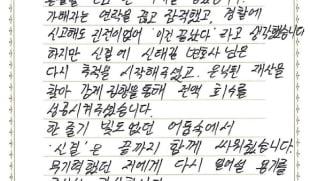 가해자는 연락을 끊고 잠적했고, 경찰에
신고해도 진전이없어 '이건 끝났다' 라고 생각했습니다
하지만 신결에 신태길 변호사님은
다시 추적을 시작해주셨고. 은닉된 재산을
찾아 강제집행을 통해 전액 회수를
성공시켜주셨습니다.
한 줄기 빛도없던 어둠속에서
'신결'은 끝까지 함께 싸워줬습니다.
무기력했던 저에게 다시 일어설 용기를